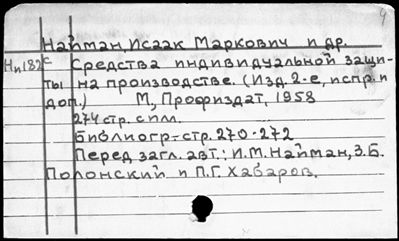 9
Найман, Исаак Маркович и др.
Нп182 с Средства индивидуальной защи-
ты на производстве. (Изд. 2-е, испр. и
доп.) М, Профиздат, 1958
274 стр. с илл.
Библиогр.- стр. 270-272
Перед загл. авт.: И.М. Найман, З.Б.
Полонский и П.Г. Хабаров.